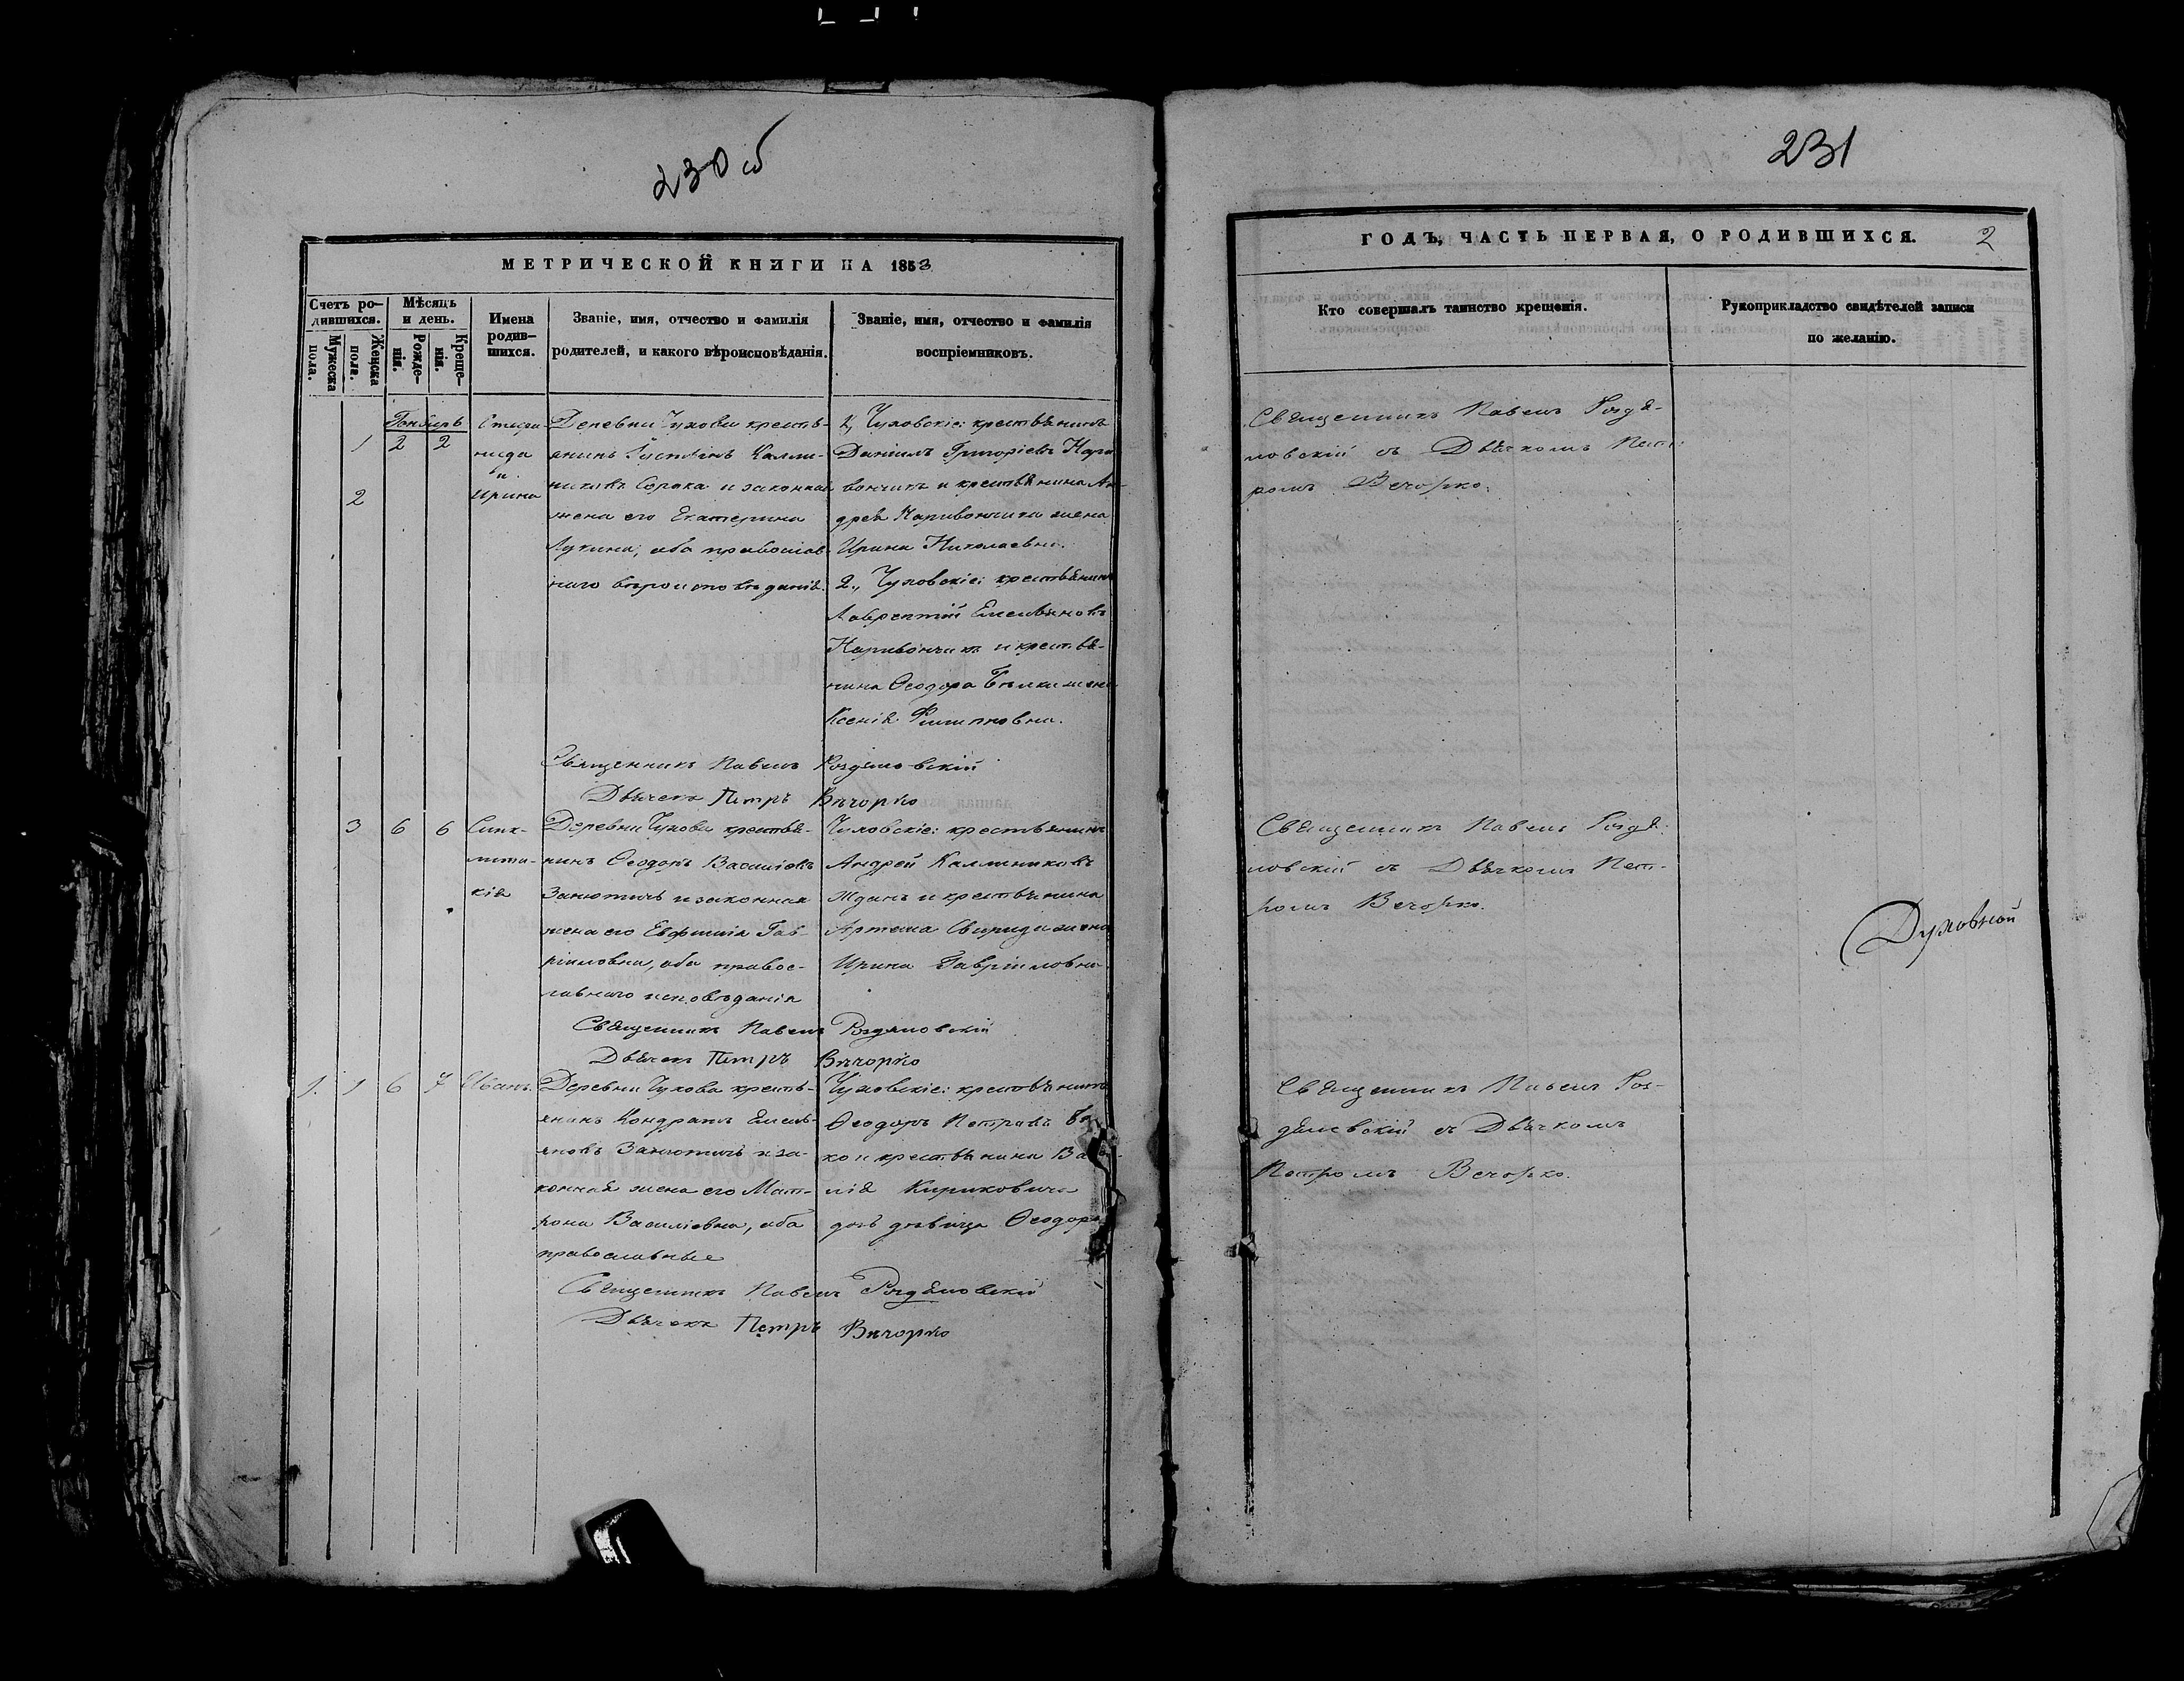 230 об
МЕТРИЧЕСКОЙ КНИГИ НА 1853
Счетъ родившихся.
Мужеска пола.
Женска пола.
Мѣсяцъ и день.
Рожденія.
Крещенія.
Имена родившихся.
Званіе, имя, отчество и фамилія
родителей, и какого вѣроисповѣданія.
Званіе, имя, отчество и фамилія
воспріемниковъ.
1
2
2 2
нида
и
Ирина
Деревни Чухова кресть-
янинъ Калли-
никовъ Сорока и законная
жена его Екатерина
Лукина, оба православ-
наго вѣроисповѣданія.
Чуховскіе: крестьянинъ
Даніилъ Григоріевъ
и крестьянина Ан-
дрея Каривончика жена
Ирина Николаевна.
2., Чуховскіе: крестьянинъ
Лаврентій Емельяновъ
Каривончикъ и крестья-
нина Ѳеодора жена
Ксенія Филиповна.
Священникъ Павелъ Роздяловскій
Дьячекъ Петръ Вечорко
3 6 6
Синк-
лити-
кія
Деревни Чухова крестья-
нинъ Ѳеодоръ Василіевъ
и законная
жена его Евфимія Гав-
ріиловна, оба правос-
лавнаго исповѣданія
Чуховскіе: крестьянинъ
Андрей Каллиниковъ
Жданъ и крестьянина
Артема Свирида жена
Ирина Гавріиловна
Священникъ Павелъ Роздяловскій
Дьячекъ Петръ Вечорко
1. 1 6 7 Иванъ.
Деревни Чухова кресть-
янинъ Кондратъ Емель-
яновъ и за-
конная жена его Мат-
рона Василіевна, оба
православные
Чуховскіе: крестьянинъ
Ѳеодоръ Петровъ
ко и крестьянина Ва
лія Кириковича
дѣвица Ѳеодора
Священникъ Павелъ Роздяловскій
Дьячекъ Петръ Вечорко
231
ГОДЪ, ЧАСТЬ ПЕРВАЯ, О РОДИВШИХСЯ. 2
Кто совершалъ таинство крещенія.
Рукоприкладство свидѣтелей записи
по желанію.
Священникъ Павелъ Роздя-
ловскій съ Дьячкомъ Пет-
ромъ Вечорко.
Священникъ Павелъ Роздя-
ловскій съ Дьячкомъ Пет-
ромъ Вечорко.
Духовной
Священникъ Павелъ Роз-
дяловскій съ Дьячкомъ
Петромъ Вечорко.